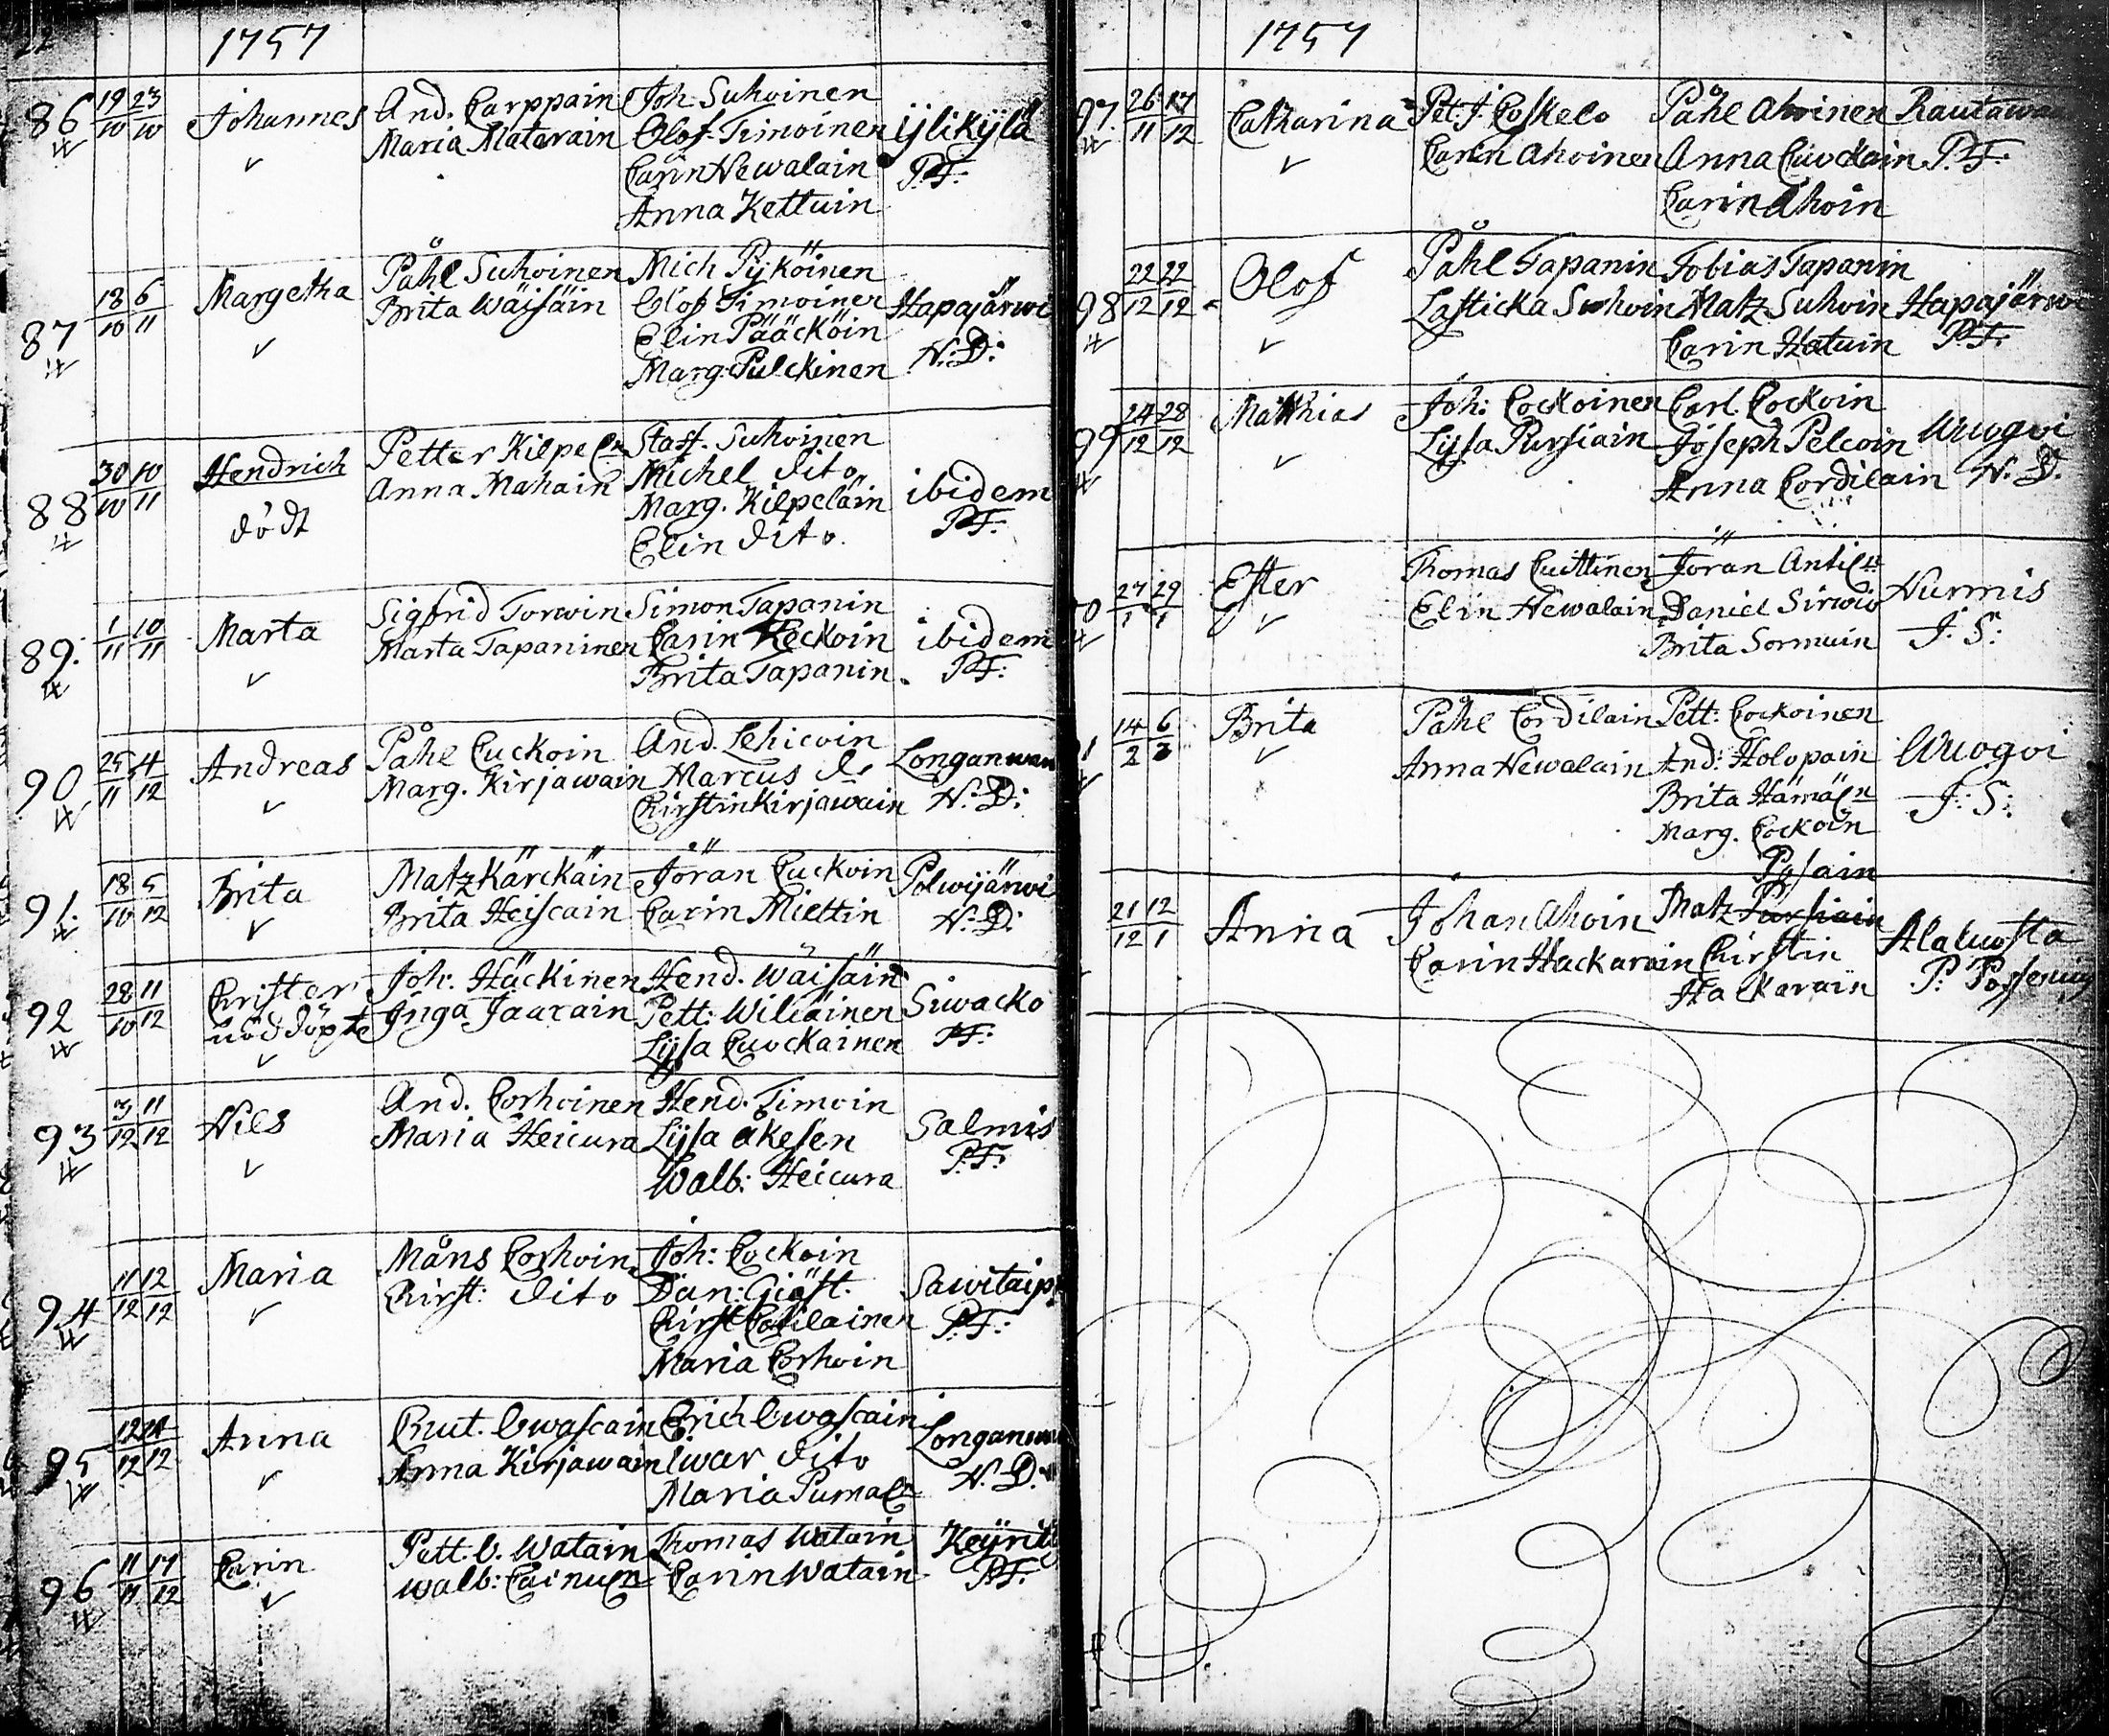 22
1757
86 19/10 23/10 Johannes And. Carppain Joh Suhoinen Ijlikylä
Maria Materain Olof Timoinen P.F:
Carin Hewalain
Anna Kettuin
87 18/10 6/11 Margetha Påhl Suhoinen Mich Pyköinen Hapajärwi
Brita Wäisäin Olof Timoinen N:D:
Elin Pääcköin
Marg: Pulckinen
88 30/10 10/11 Hendrich Petter Kilpeln Staff. Suhoinen ibidem
dödt Anna Mahain Michel dito P.F:
Marg. Kilpeläin
Elin dito.
89. 1/11 10/11 Marta Sigfrid Torwin Simon Tapanin ibidem
Marta Tapaninen Carin Heckoin P.F:
Brita Tapanin
90 25/11 4/12 Andreas Påhl Cuckoin And. Lehicoin Longanwan
Marg. Kirjawain Marcus d. N:D:
Kirstin Kirjawain
91. 18/10 5/12 Brita Matz Kärckäin Jöran Cuckoin Polwijärwi
Brita Heiscain Carin Miettin N:D:
92 28/10 11/12 Christer Joh: Häckinen Hend. Wäisäin Siwacko
nöddöpte Inga Jaarain Pett: Wiliäinen P.F:
Lijsa Cuockainen
93 3/12 11/12 Nils And. Corhoinen Hend. Timoin Salmis
Maria Heicura Lijsa Åkesen P.F:
Walb: Heicura
94 11/12 12/12 Maria Måns Corhoin Joh: Cockoin Sawitaip
Kirst: dito Dan: Giöst. P.F:
Maria Corhoin
95 12/12 Anna Knut. Owascain Erich Owascain Longanwa
Anna Kirjawain Iwar dito N:D:
Maria Pumaln
96 11/11 17/12 Carin Pett. O. Watain Thomas Watain Keyrit
Walb: Cainuln Carin Watain P.F:
1757
97. 26/11 17/12 Catharina Pet: J. Coskelo Påhl Ahoinen Rautawa
Carin Ahoinen Anna Cuockain P.F:
Carin Ahoin
98 22/12 22/12 Olof Påhl Tapanin Tobias Tapanin Hapajärwi
Lasticka Suhoin Matz Suhoin P.F:
Carin Hatuin
99 24/12 28/12 Matthias Joh: Cockoinen Carl Cockoin Wuogvi
Lijsa Pursiain Joseph Pelcoin N:D:
Anna Cordilain
0 27/1 29/1 Ester Thomas Cuittinen Jöran Antiln Nurmis
Elin Hewalain Daniel Sirwio J:S:
Brita Sormuin
1 14/2 6/3 Brita Påhl Cordilain Pett: Cockoinen Wuogvi
Anna Hewalain And: Holopain J:S:
Brita Hämäln
Marg. Cockoin
Posain
21/12 12/1 Anna Johan Ahoin Matz Pursiain Alaluosta
Carin Hackarain Kirstin
Hackarain